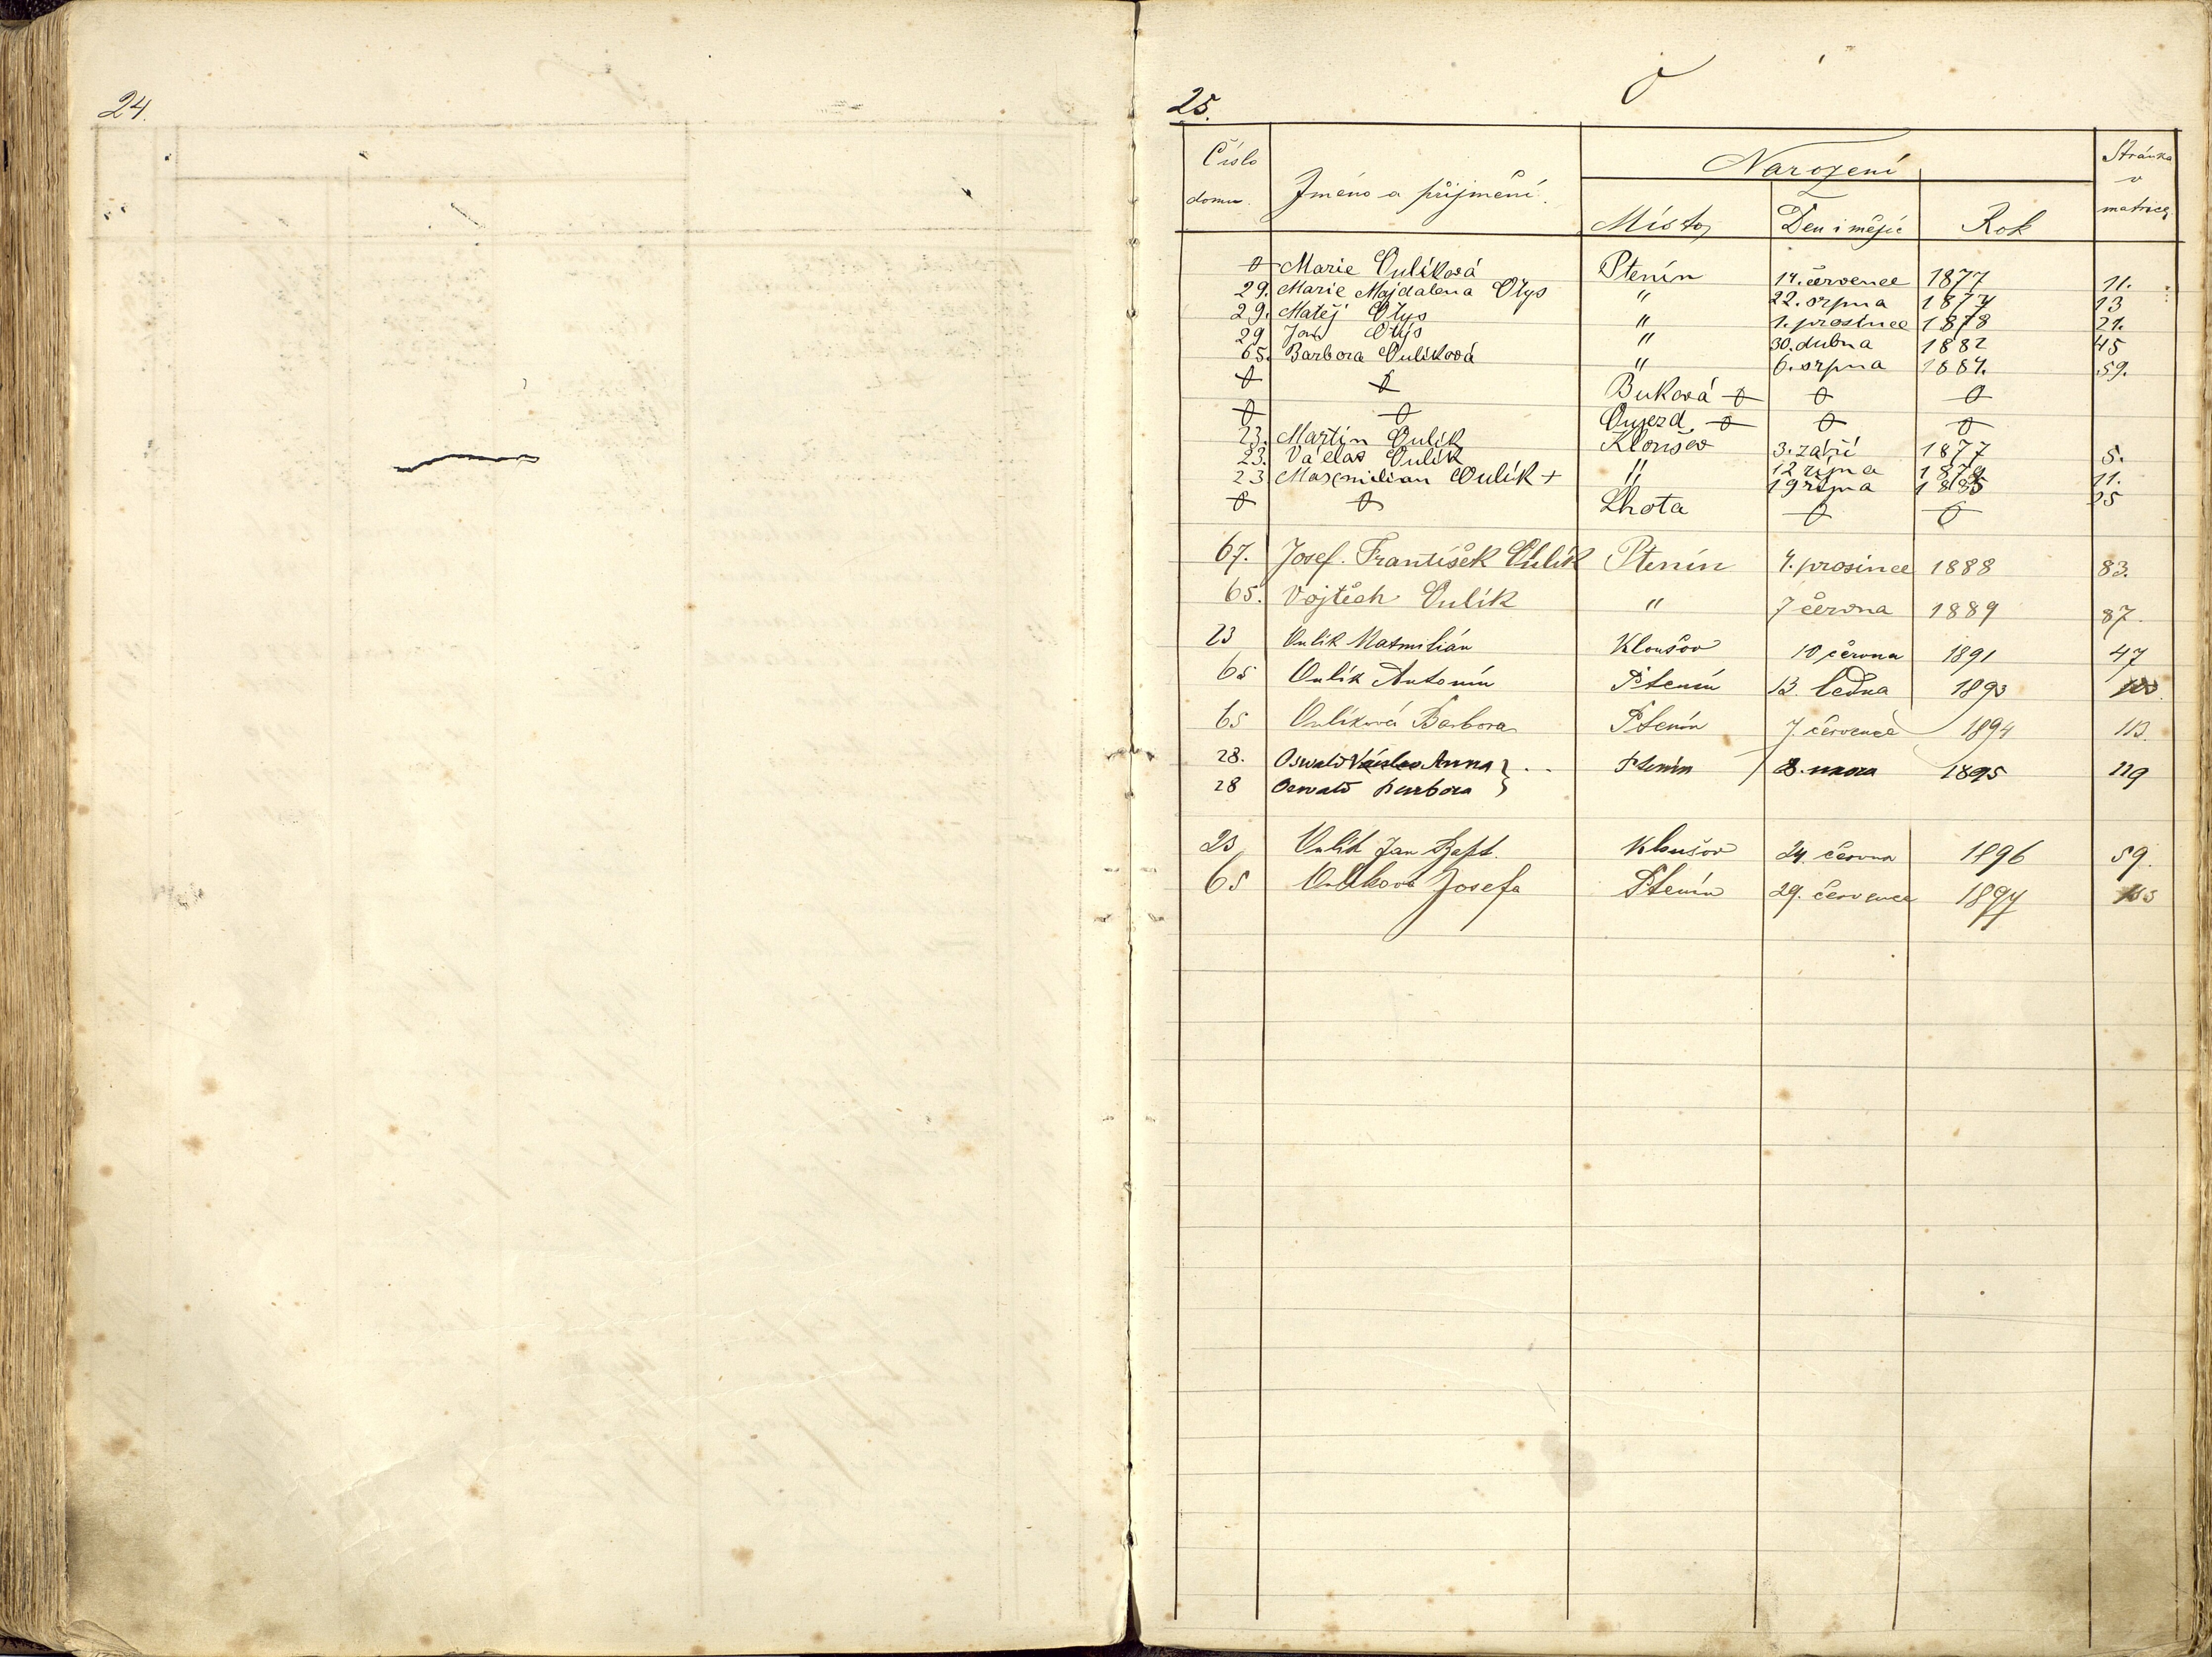 24.
25.
O
Číslo domu. Jméno a přijmění. Narození Stránka v matrice
Místo Den i měsíc Rok
0 Marie Oulíková Ptenín 14. července 1877 11.
29. Marie Majdalena Otys " 22. srpna 1877 13
29. Matěj Otys " 1. prosince 1878 21.
29 Jan Otys " 30. dubna 1882 45
65. Barbora Oulíková " 6. srpna 1884. 59.
0 0 Buková 0 0 0
0 0 Oujezd 0 0 0
23. Martin Oulík Kloušov 3. září 1877 5.
23. Václav Oulík " 12 října 1879 11.
23 Maxmilian Oulík + " 19 října 1885 25
0 0 Lhota 0 0
67. Josef František Oulík Ptenín 4. prosince 1888 83.
65. Vojtěch Oulík " 7 června 1889 87.
23 Oulík Maxmilián Kloušov 10 června 1891 47
65 Oulík Antonín Ptenín 13. ledna 1893
65 Oulíková Barbora Ptenín 7. července 1894 113.
28. Oswald Václav Anna } . . Ptenín 8. února 1895 119
28 Oswald Barbora }
23 Oulík Jan Bapt. Kloušov 24. června 1896 59.
65 Oulíková Josefa Ptenín 29. července 1897